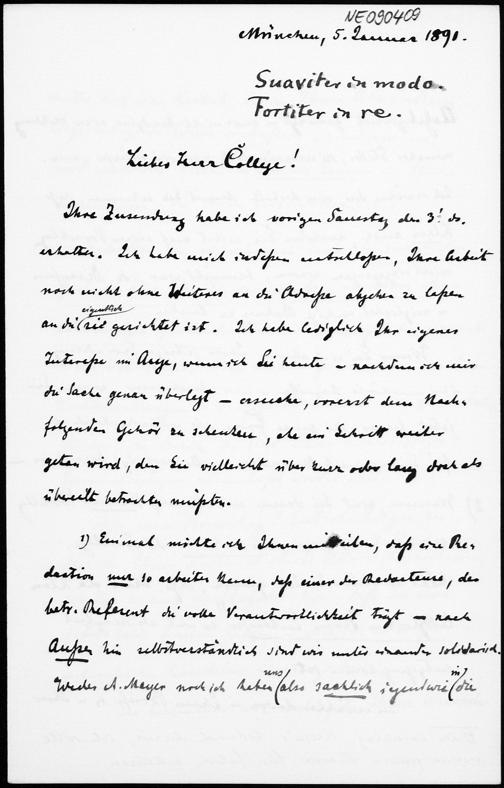 NE090409
München, 5. Januar 1891.
Suaviter in modo.
Fortiter in re.
Lieber Herr College!
Ihre Zusendung habe ich vorigen Samstag den 3t. ds.
erhalten. Ich habe mich indessen entschlossen, Ihre Arbeit
noch nicht ohne Weiteres an die Adresse abgehen zu lassen
an die sie eigentlich gerichtet ist. Ich habe lediglich Ihr eigenes
Interesse im Auge, wenn ich Sie heute – nachdem ich mir
die Sache genau überlegt – ersuche, vorerst dem Nach-
folgenden Gehör zu schenken, ehe ein Schritt weiter
getan wird, den Sie vielleicht über kurz oder lang doch als
übereilt betrachten müssten.
1) Einmal möchte ich Ihnen, daß eine Re-
daction nur so arbeiten kann, daß einer der Redacteure, der
betr. Referent die volle Verantwortlichkeit trägt – nach
Außen hin selbstverständlich sind wir unter einander solidarisch.
Weder A. Meyer noch ich haben uns (also sachlich irgendwie) in die